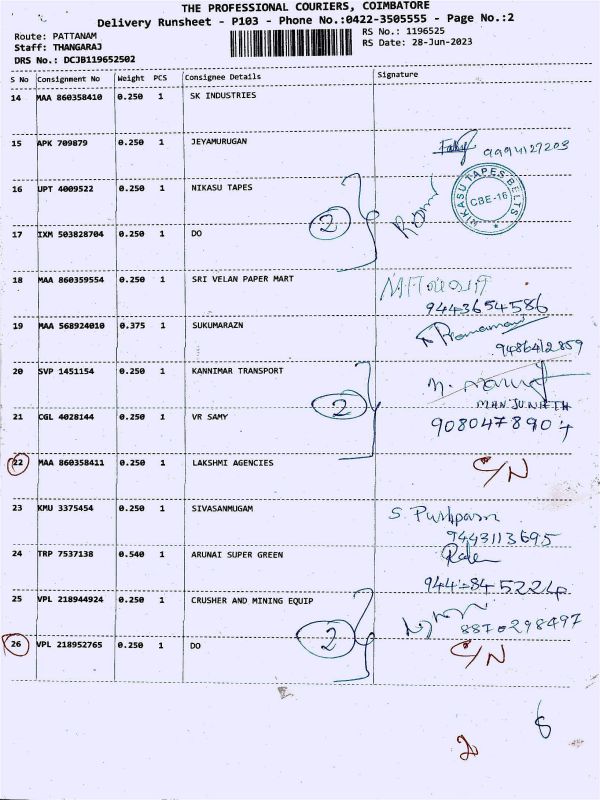 THE PROFESSIONAL COURIERS, COIMBATORE
Delivery Runsheet - P103 - Phone No.:0422-3505555 - Page No.:2
Route: PATTANAM
Staff: THANGARAJ
DRS No.: DCJB119652502
RS No.: 1196525
RS Date: 28-Jun-2023
S No Consignment No Weight PCS Consignee Details Signature
14 MAA 860358410 0.250 1 SK INDUSTRIES
15 APK 709879 0.250 1 JEYAMURUGAN
16 UPT 4009522 0.250 1 NIKASU TAPES
2
NIKASU TAPES-BELTS
CBE-16
17 IXM 503828704 0.250 1 DO
18 MAA 860359554 0.250 1 SRI VELAN PAPER MART
9443654586
19 MAA 568924010 0.375 1 SUKUMARAZN
9486412859
20 SVP 1451154 0.250 1 KANNIMAR TRANSPORT
2
MANJUNATH
21 CGL 4028144 0.250 1 VR SAMY
22 MAA 860358411 0.250 1 LAKSHMI AGENCIES C/N
23 KMU 3375454 0.250 1 SIVASANMUGAM S. Pushpam
9443113695
24 TRP 7537138 0.540 1 ARUNAI SUPER GREEN
25 VPL 218944924 0.250 1 CRUSHER AND MINING EQUIP
8870298497
2
26 VPL 218952765 0.250 1 DO C/N